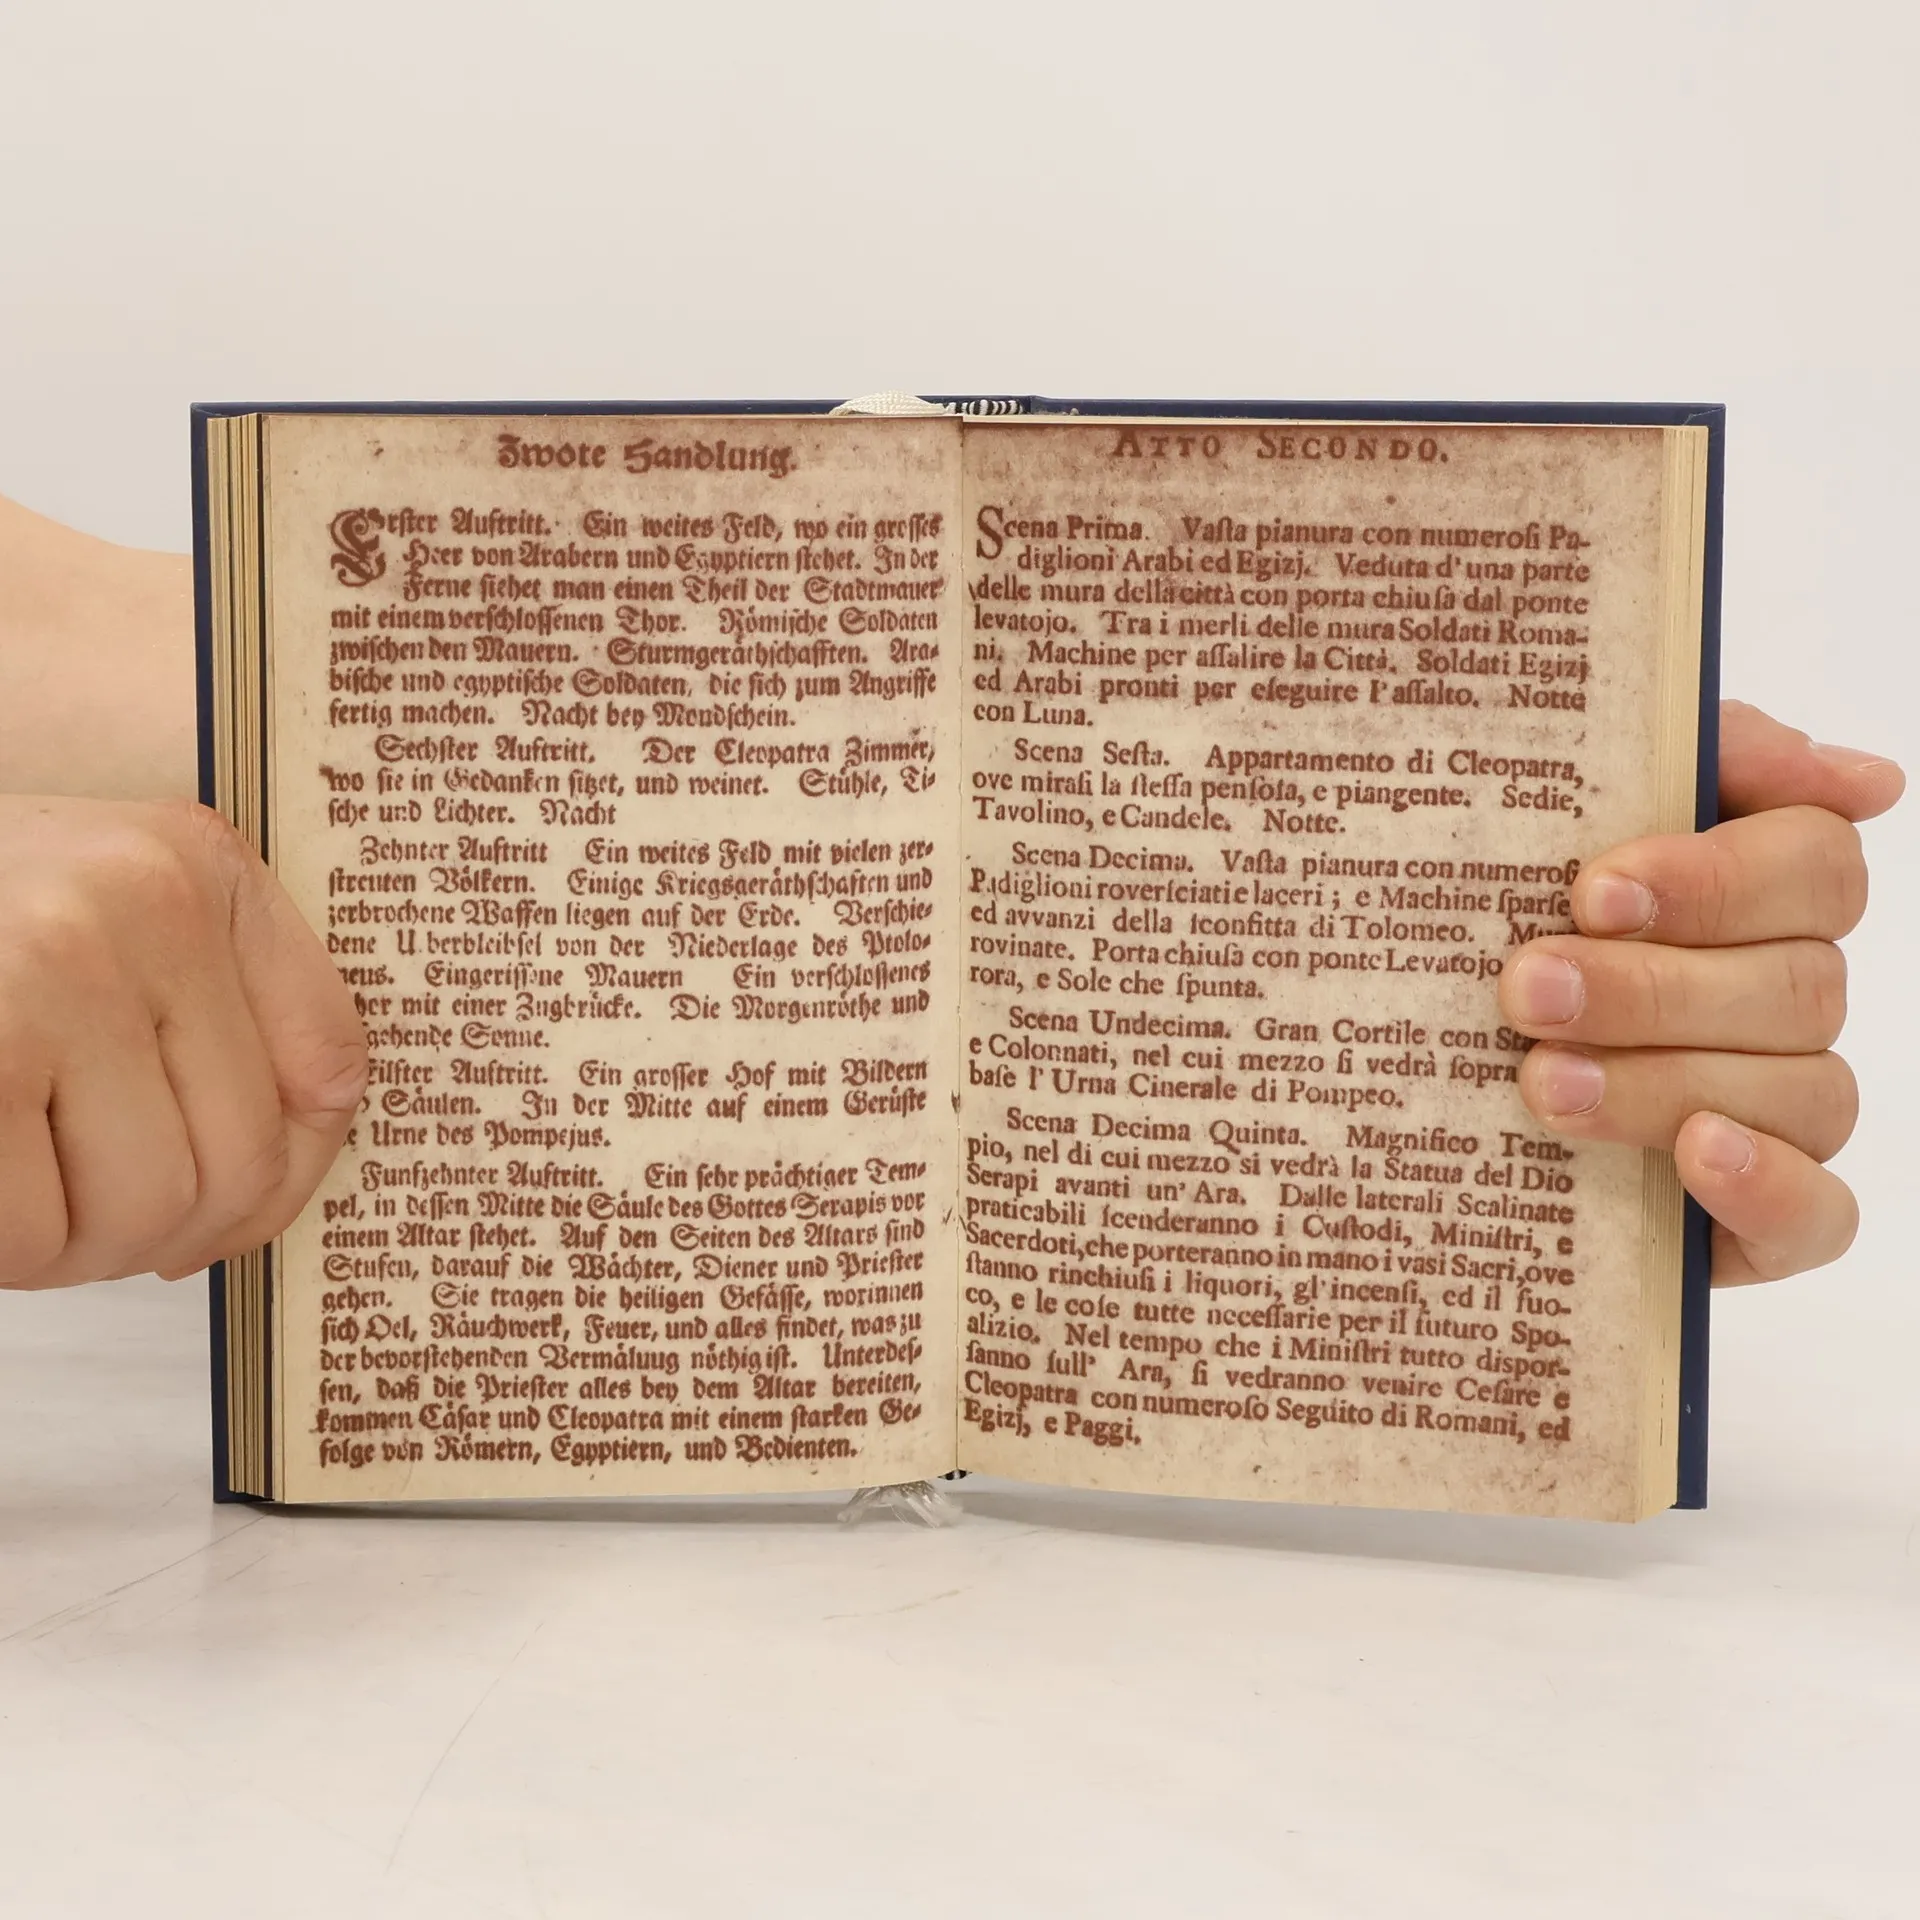 Zwote Handlung.
Erster Auftritt. Ein weites Feld, wo ein grosses
Heer von Arabern und Egyptiern stehet. In der
Ferne siehet man einen Theil der Stadtmauer
mit einem verschlossenen Thor. Römische Soldaten
zwischen den Mauern. Sturmgeräthschafften. Ara-
bische und egyptische Soldaten, die sich zum Angriffe
fertig machen. Nacht bey Mondschein.
Sechster Auftritt. Der Cleopatra Zimmer,
wo sie in Gedanken sitzet, und weinet. Stühle, Ti-
sche und Lichter. Nacht
Zehnter Auftritt Ein weites Feld mit vielen zer-
streuten Völkern. Einige Kriegsgeräthschaften und
zerbrochene Waffen liegen auf der Erde. Verschie-
dene Uberbleibsel von der Niederlage des Ptolo-
meus. Eingerissene Mauern Ein verschlossenes
mit einer Zugbrücke. Die Morgenröthe und
gehende Sonne.
Eilfter Auftritt. Ein grosser Hof mit Bildern
Säulen. In der Mitte auf einem Gerüste
Urne des Pompejus.
Funfzehnter Auftritt. Ein sehr prächtiger Tem-
pel, in dessen Mitte die Säule des Gottes Serapis vor
einem Altar stehet. Auf den Seiten des Altars sind
Stufen, darauf die Wächter, Diener und Priester
gehen. Sie tragen die heiligen Gefässe, worinnen
sich Oel, Räuchwerk, Feuer, und alles findet, was zu
der bevorstehenden Vermäluug nöthig ist. Unterdes-
sen, daß die Priester alles bey dem Altar bereiten,
kommen Cäsar und Cleopatra mit einem starken Ge-
folge von Römern, Egyptiern, und Bedienten.
ATTO SECONDO.
Scena Prima. Vaſta pianura con numeroſi Pa-
diglioni Arabi ed Egizj. Veduta d' una parte
delle mura della città con porta chiuſa dal ponte
levatojo. Tra i merli delle mura Soldati Roma-
ni. Machine per aſſalire la Città. Soldati Egizj
ed Arabi pronti per eſeguire l' aſſalto. Notte
con Luna.
Scena Seſta. Appartamento di Cleopatra,
ove miraſi la ſteſſa penſoſa, e piangente. Sedie,
Tavolino, e Candele. Notte.
Scena Decima. Vaſta pianura con numeroſi
Padiglioni roverſciati e laceri ; e Machine ſparſe
ed avvanzi della ſconfitta di Tolomeo.
rovinate. Porta chiuſa con ponte Levatojo
rora, e Sole che ſpunta.
Scena Undecima. Gran Cortile con
e Colonnati, nel cui mezzo ſi vedrà ſopra
baſe l' Urna Cinerale di Pompeo.
Scena Decima Quinta. Magnifico Tem-
pio, nel di cui mezzo si vedrà la Statua del Dio
Serapi avanti un' Ara. Dalle laterali Scalinate
praticabili ſcenderanno i Cuſtodi, Miniſtri, e
Sacerdoti, che porteranno in mano i vasi Sacri, ove
ſtanno rinchiuſi i liquori, gl' incenſi, ed il fuo-
co, e le coſe tutte neceſſarie per il futuro Spo-
alizio. Nel tempo che i Miniſtri tutto dispor-
ſanno ſull' Ara, ſi vedranno venire Ceſare e
Cleopatra con numeroſo Seguito di Romani, ed
Egizj, e Paggi.